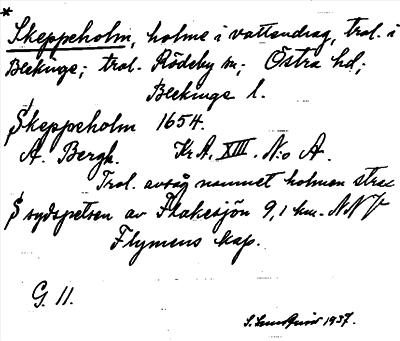 * Skeppeholm, holme i vattendrag, trol. i
Blekinge; trol. Rödeby sn; Östra hd;
Blekinge l.
Skeppeholm 1654.
A. Bergh. Kr.A. XIII. N:o A.
Trol. avsåg namnet holmen strax
S sydspetsen av Flakesjön 9,1 km. NNV
Flymens kap.
G. 11.
S. Lundqvist 1937.